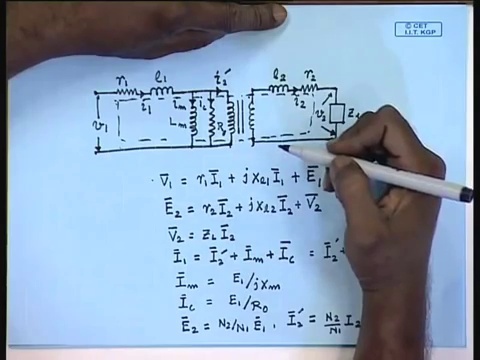 © CET
I.I.T. KGP
r₁ l₁ i₂′ l₂ r₂
i₁ i_m i_c i₂
v₁ L_m R v₂ Z
V̄₁ = r₁Ī₁ + jx_l1 Ī₁ + Ē₁
Ē₂ = r₂Ī₂ + jx_l2 Ī₂ + V̄₂
V̄₂ = Z_L Ī₂
Ī₁ = Ī₂′ + Ī_m + Ī_c = Ī₂′ +
Ī_m = E₁/jx_m
Ī_c = E₁/R₀
Ē₂ = N₂/N₁ Ē₁, Ī₂′ = N₂/N₁ I₂